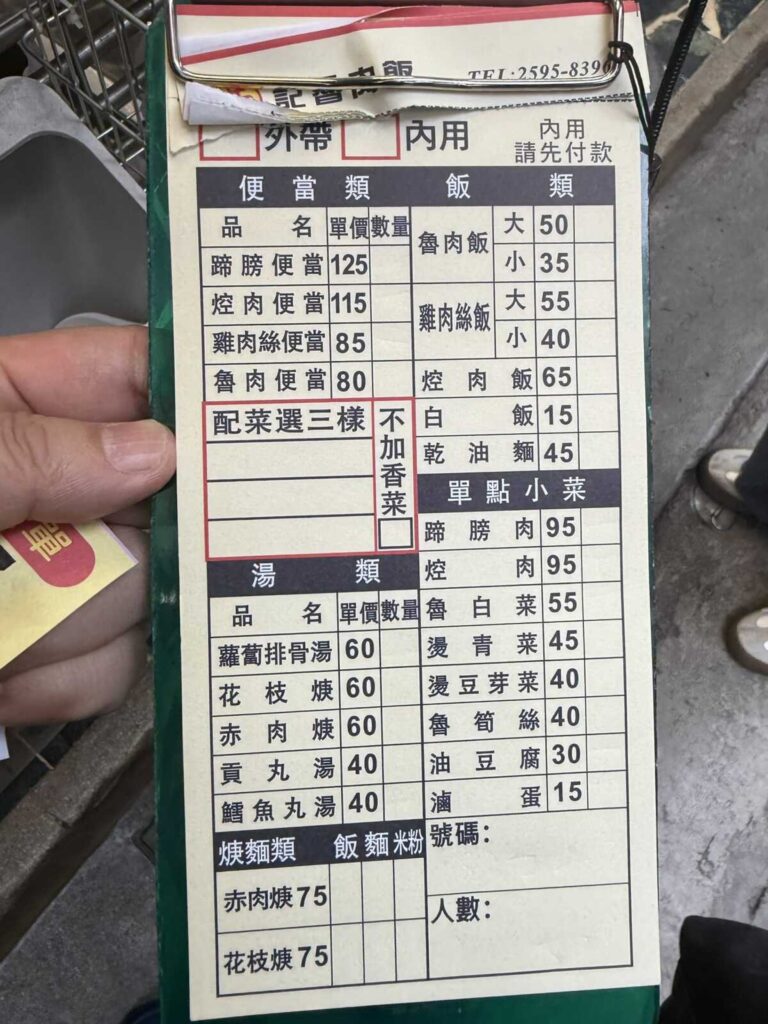 記魯肉飯 TEL:2595-839
外帶 內用 內用
請先付款
便當類
品名 單價 數量
蹄膀便當 125
焢肉便當 115
雞肉絲便當 85
魯肉便當 80
配菜選三樣
不加香菜
湯類
品名 單價 數量
蘿蔔排骨湯 60
花枝焿 60
赤肉焿 60
貢丸湯 40
鱈魚丸湯 40
焿麵類 飯 麵 米粉
赤肉焿 75
花枝焿 75
飯類
魯肉飯 大 50
小 35
雞肉絲飯 大 55
小 40
焢肉飯 65
白飯 15
乾油麵 45
單點小菜
蹄膀肉 95
焢肉 95
魯白菜 55
燙青菜 45
燙豆芽菜 40
魯筍絲 40
油豆腐 30
滷蛋 15
號碼:
人數:
單